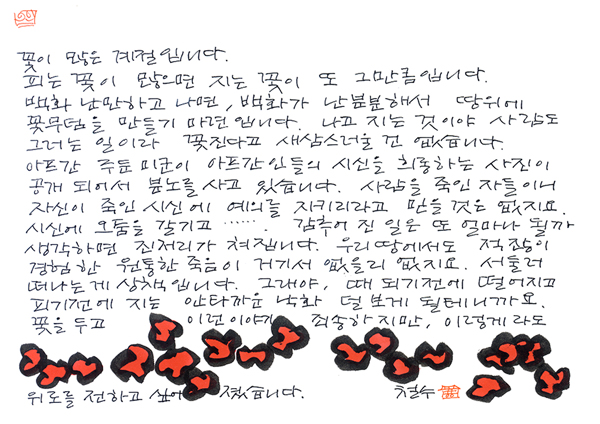 꽃이 많은 계절입니다.
피는 꽃이 많으면 지는 꽃이 또 그만큼입니다.
백화 난만하고 나면, 백화가 난분분해서 땅위에
꽃무덤을 만들기 마련입니다. 나고 지는 것이야 사람도
그러는 일이라 꽃진다고 새삼스러울 건 없습니다.
아프간 주둔 미군이 아프간인들의 시신을 희롱하는 사진이
공개 되어서 분노를 사고 있습니다. 사람을 죽인 자들이니
자신이 죽인 시신에 예의를 지키리라고 믿을 것은 없지요.
시신에 오줌을 갈기고 ······. 감추어 진 일은 또 얼마나 될까
생각하면 진저리가 쳐집니다. 우리땅에서도 적잖이
경험한 원통한 죽음이 거기서 없을리 없지요. 서둘러
떠나는게 상책입니다. 그래야, 때 되기전에 떨어지고
피기전에 지는 안타까운 낙화 덜 보게 될테니까요.
꽃을 두고 이런이야기 죄송하지만, 이렇게라도
위로를 전하고 싶어 졌습니다. 철수